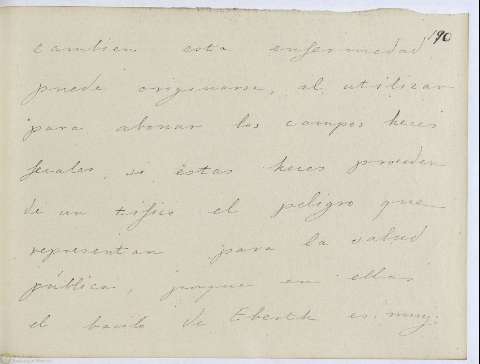 190
tambien esta enfermedad
puede originarse, al utilizar
para abonar los campos heces
fecales, si éstas heces proceden
de un tifico el peligro que
representan para la salud
pública, porque en ellas
el bacilo de Eberth es muy